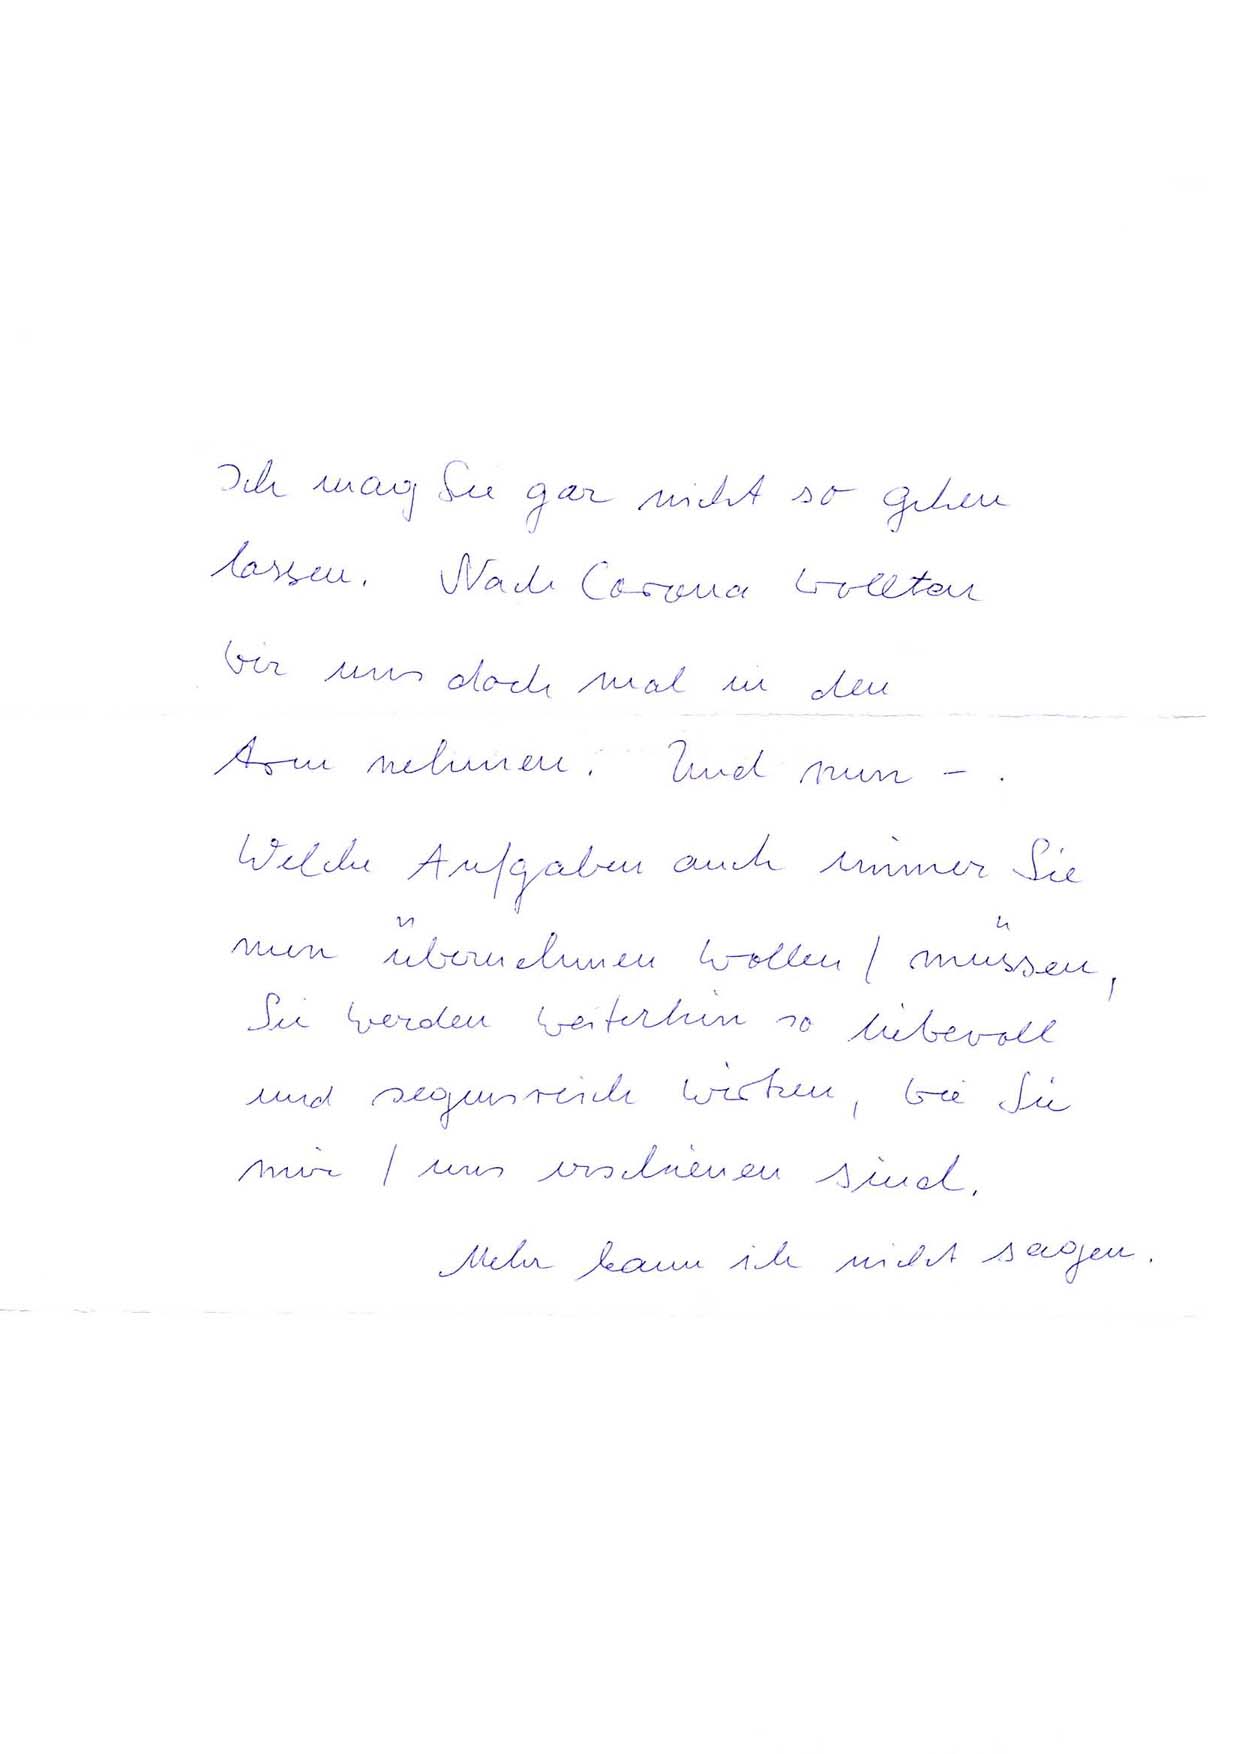 Ich mag Sie gar nicht so gehen
lassen. Nach Corona wollten
wir uns doch mal in den
Arm nehmen. Und nun – .
Welche Aufgaben auch immer Sie
nun übernehmen wollen / müssen,
Sie werden weiterhin so liebevoll
und segensreich wirken, wie Sie
mir / uns erschienen sind.
Mehr kann ich nicht sagen.